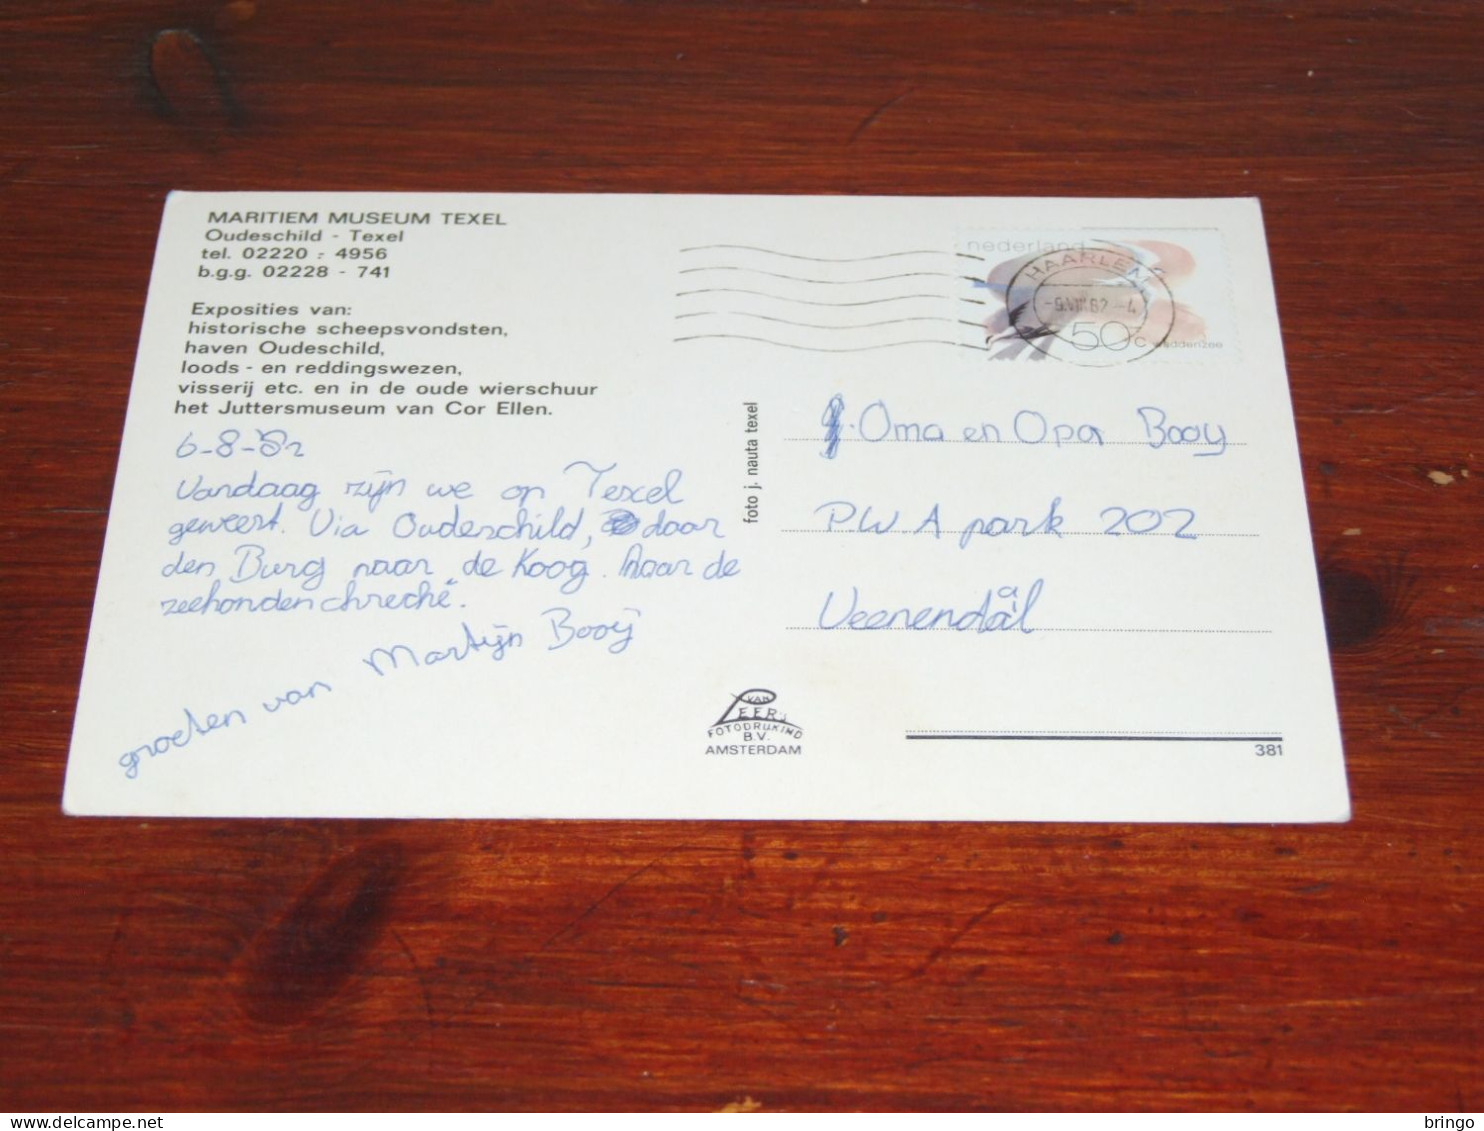 MARITIEM MUSEUM TEXEL
Oudeschild - Texel
tel. 02220 - 4956
b.g.g. 02228 - 741
Exposities van:
historische scheepsvondsten,
haven Oudeschild,
loods - en reddingswezen,
visserij etc. en in de oude wierschuur
het Juttersmuseum van Cor Ellen.
6-8-'82
Vandaag zijn we op Texel
geweest. Via Oudeschild, daar
den Burg naar de Koog. Naar de
zeehondenchreché.
groeten van Martijn Booij
foto j. nauta texel
nederland
HAARLEM
50 c waddenzee
Oma en Opa Booy
P.W.A park 202
Veenendaal
VAN
LEER'S
FOTODRUKIND
B.V.
AMSTERDAM
381
delcampe.net
bringo